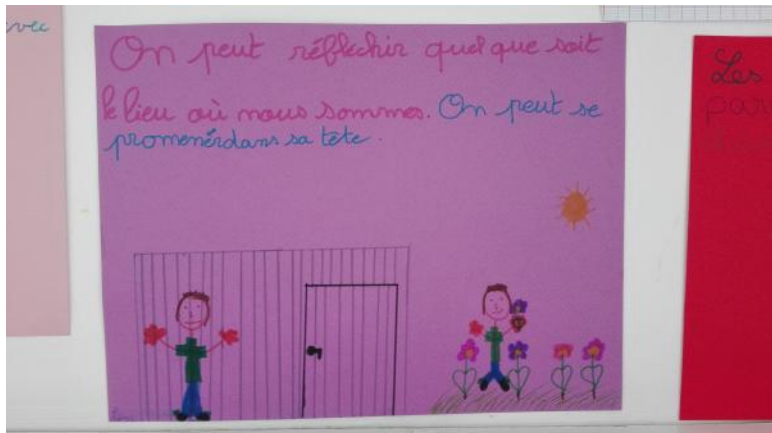 avec
On peut réflechir quelque soit
le lieu où nous sommes. On peut se
promenérdans sa tête.
Les
par